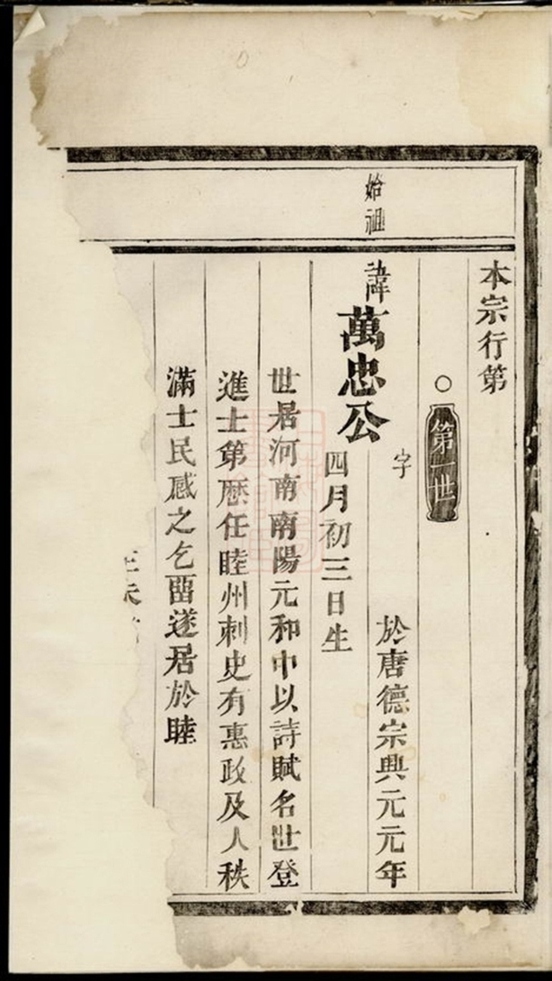 本宗行第
○第一世
始祖
諱萬忠公字
於唐德宗興元元年
四月初三日生
世居河南南陽元和中以詩賦名世登
進士第歷任睦州刺史有惠政及人秩
滿士民感之乞畱遂居於睦